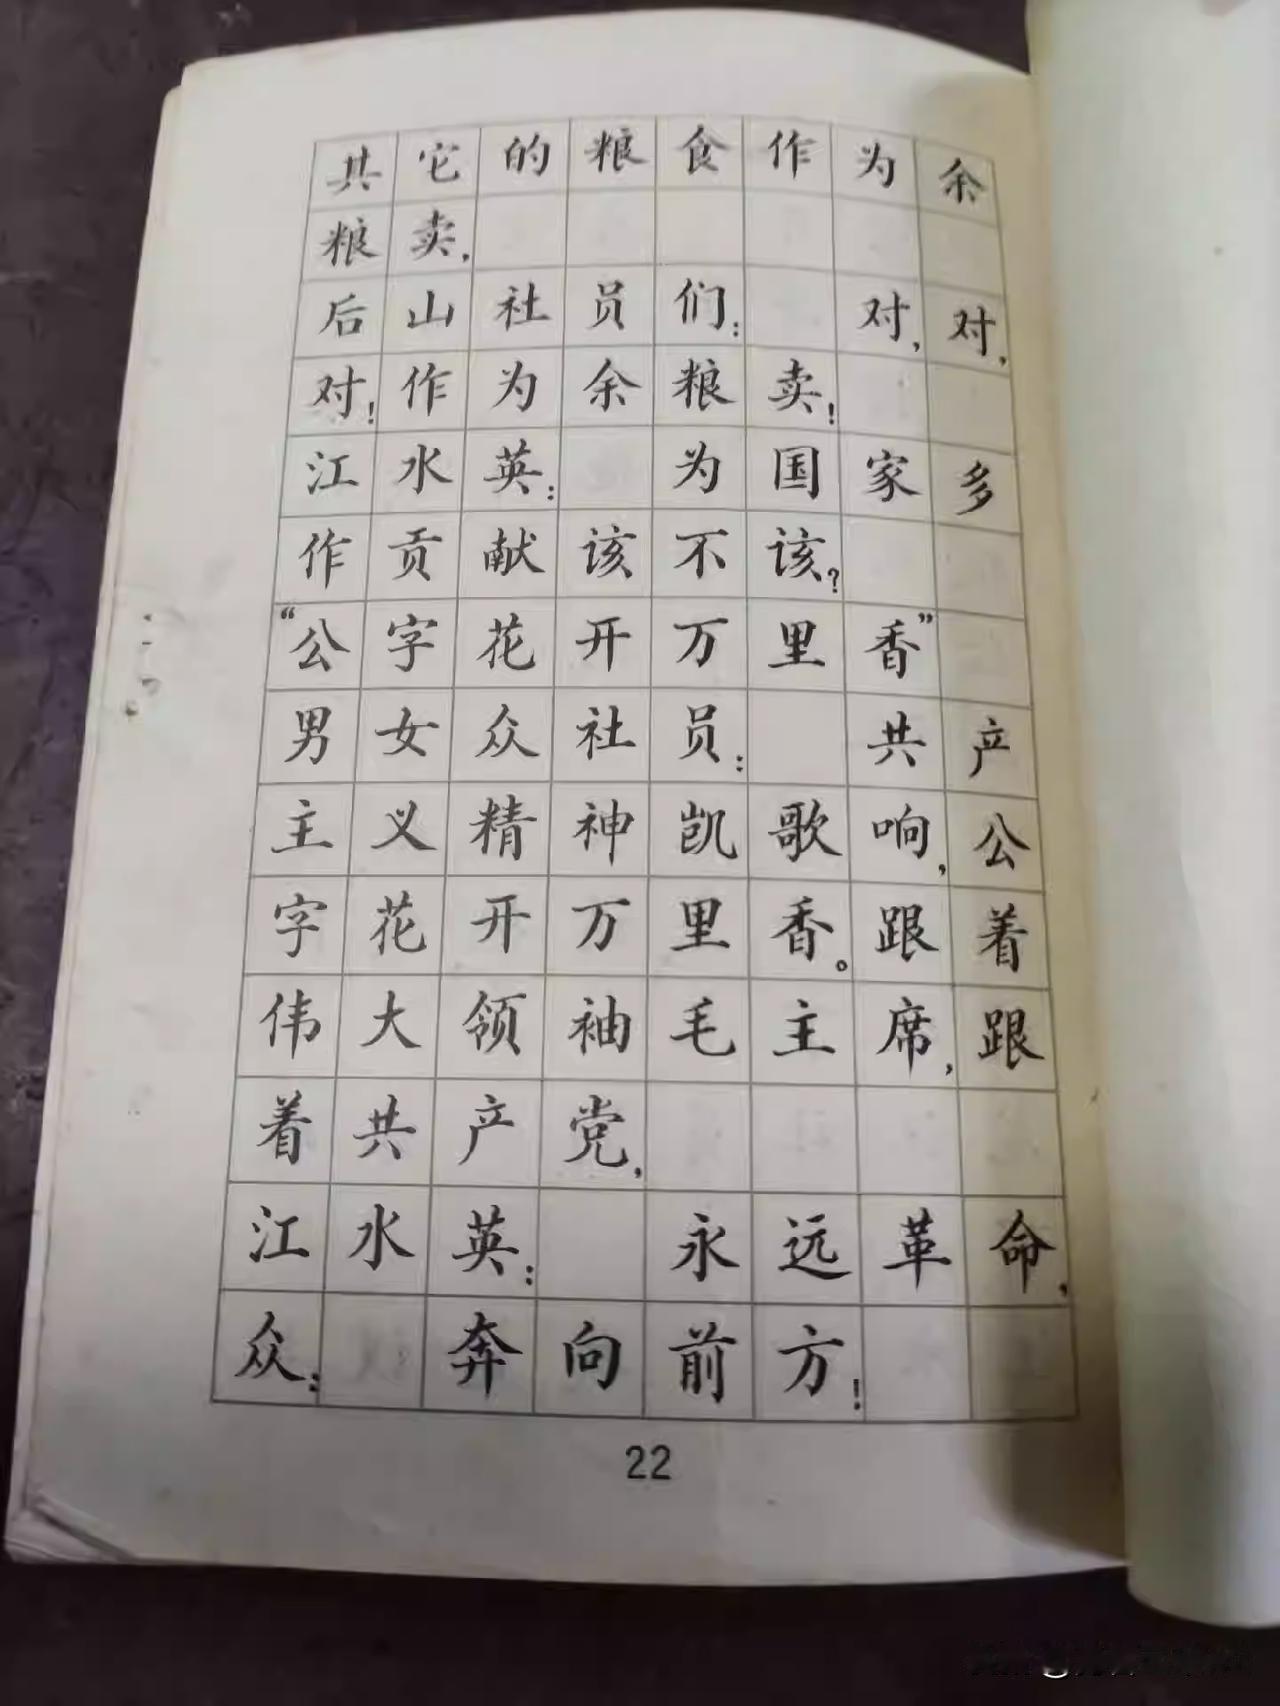 其它的粮食作为余
粮卖,
后山社员们: 对,对,
对!作为余粮卖!
江水英: 为国家多
作贡献该不该?
“公字花开万里香”
男女众社员: 共产
主义精神凯歌响,公
字花开万里香。跟着
伟大领袖毛主席,跟
着共产党,
江水英: 永远革命,
众: 奔向前方!
22